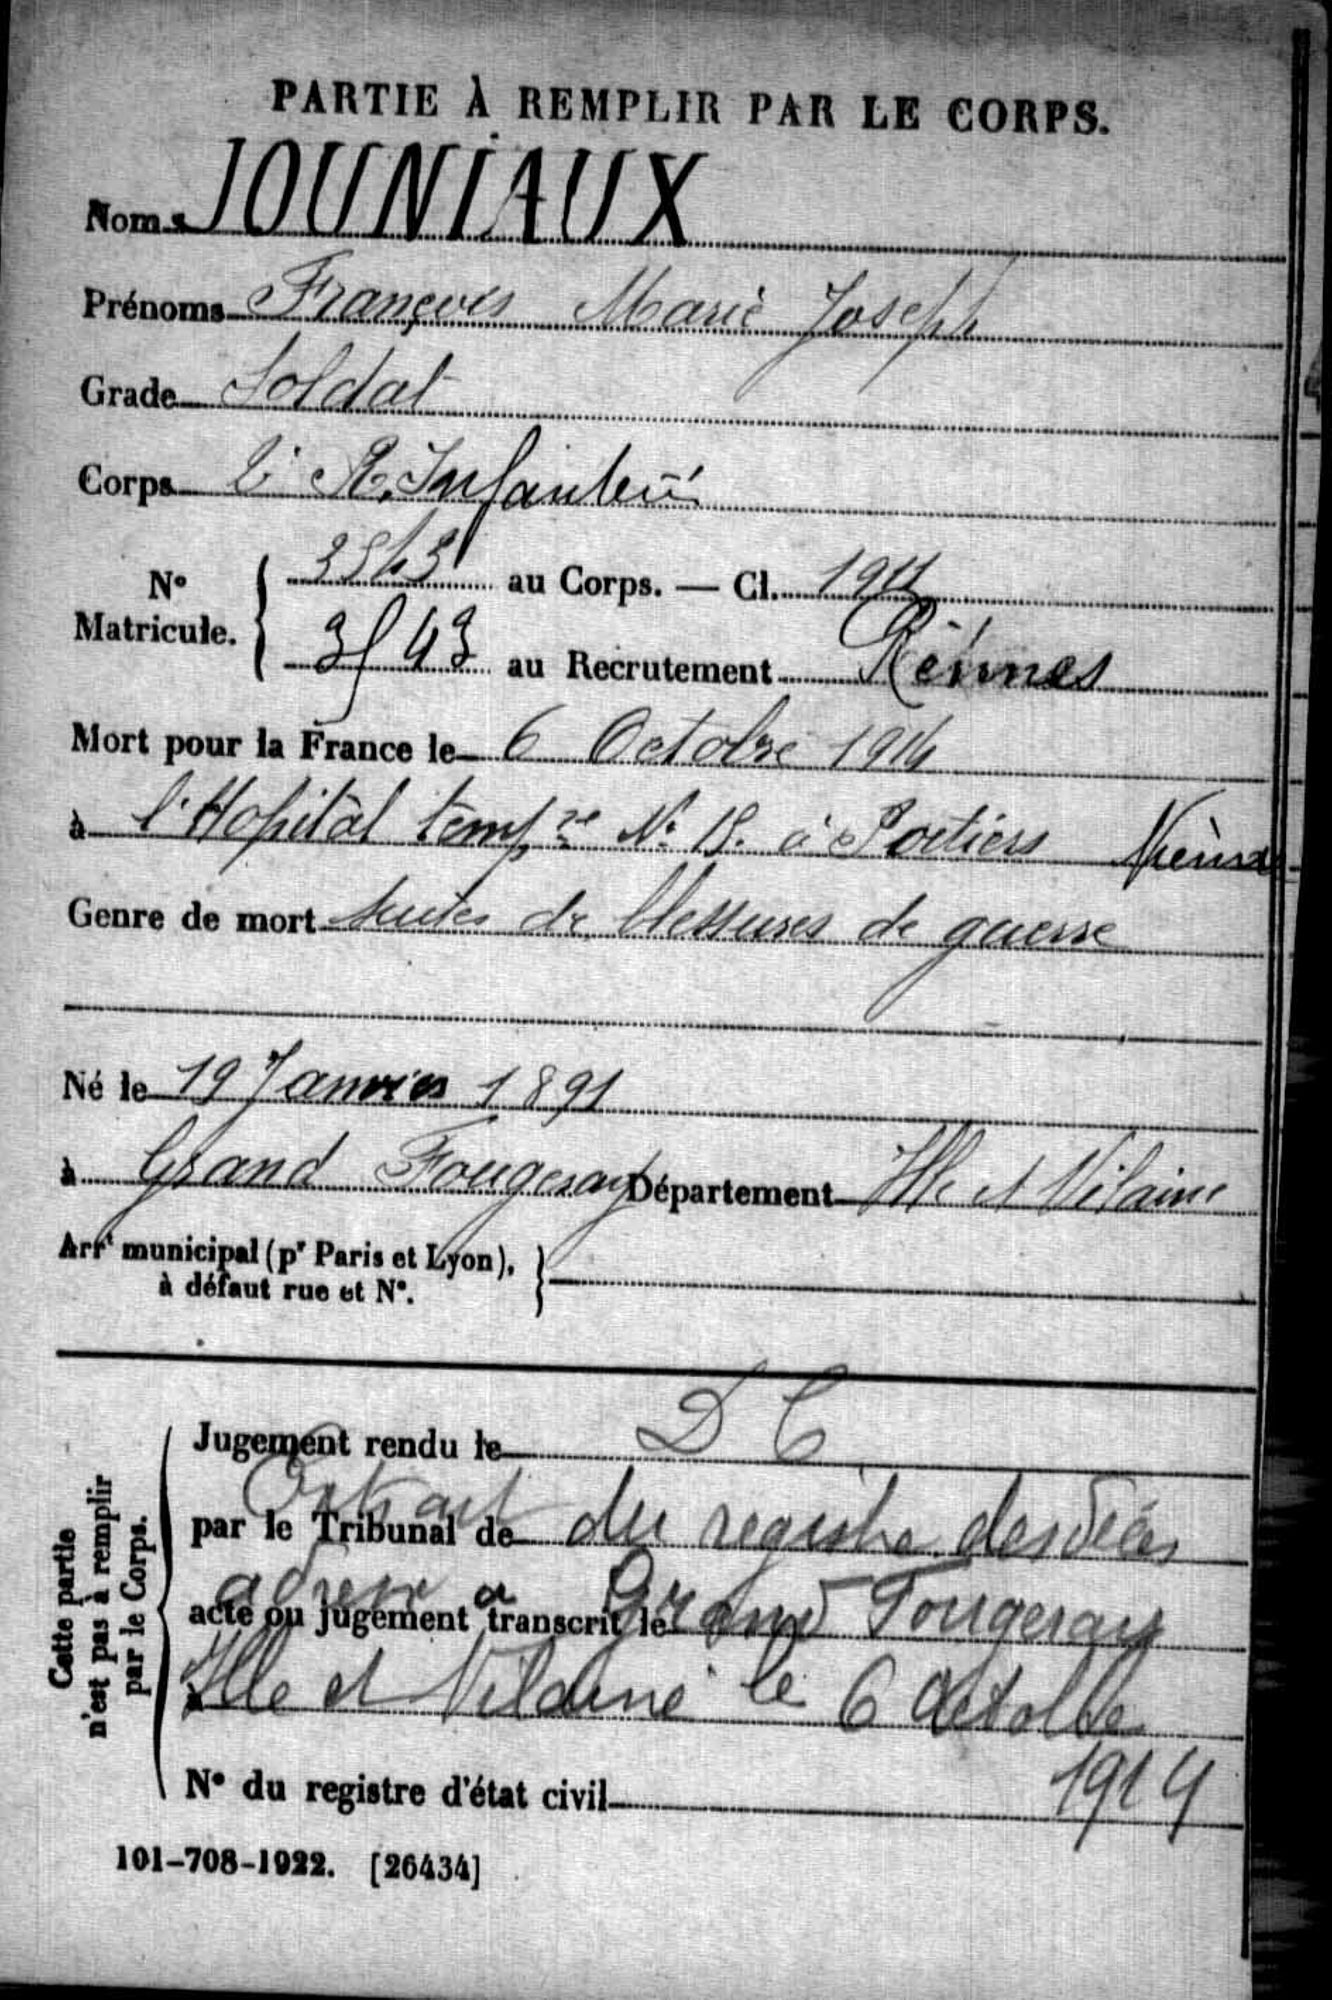 PARTIE À REMPLIR PAR LE CORPS.
Nom JOUNIAUX
Prénoms François Marie Joseph
Grade Soldat
Corps 2e R. Infanterie
N° Matricule. { 3543 au Corps. — Cl. 1911
3543 au Recrutement Rennes
Mort pour la France le 6 Octobre 1914
à l'Hopital tempre No 18. à Poitiers Vienne
Genre de mort suites de blessures de guerre
Né le 19 Janvier 1891
à Grand Fougeray Département Ille et Vilaine
Arrt municipal (pr Paris et Lyon), }
à défaut rue et N°.
Cette partie
n'est pas à remplir
par le Corps.
Jugement rendu le D C
Extrait
par le Tribunal de du registre des décès
adressé a Grand Fougeray
acte ou jugement transcrit le
à Ille et Vilaine le 6 Octobre
1914
N° du registre d'état civil
101-708-1922. [26434]